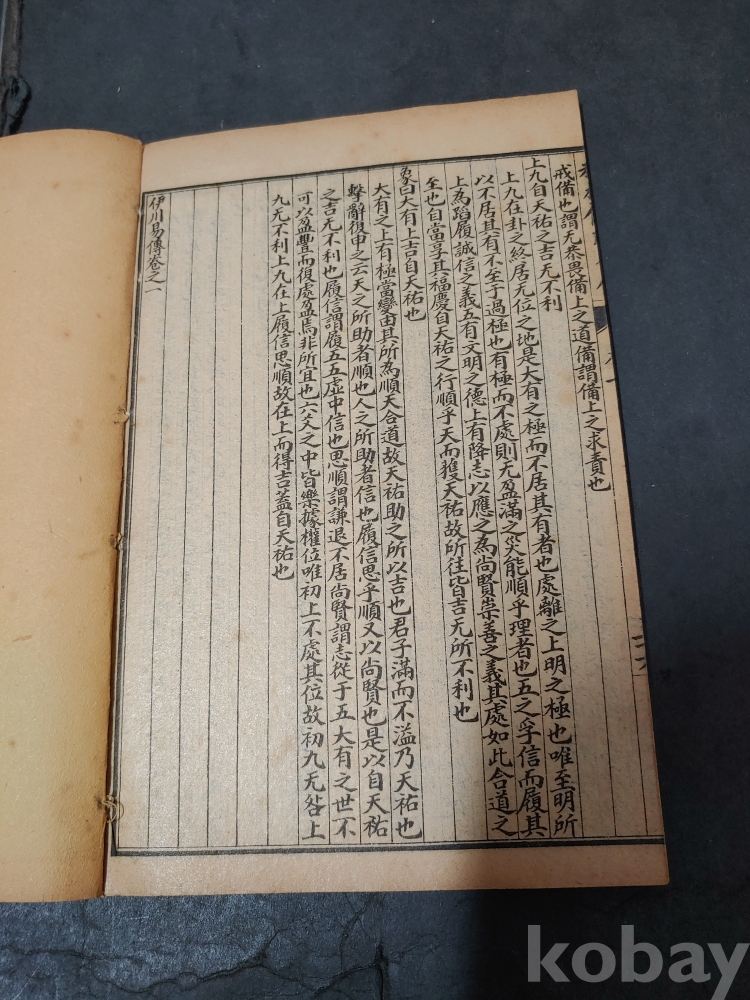 戒備也謂无恭畏備上之道備謂備上之求責也
上九自天祐之吉无不利
上九在卦之終居无位之地是大有之極而不居其有者也處離之上明之極也唯至明所
以不居其有不至于過極也有極而不處則无盈滿之災能順乎理者也五之孚信而履其
上為蹈履誠信之義五有文明之德上有降志以應之為尚賢崇善之義其處如此合道之
至也自當享其福慶自天祐之行順乎天而獲天祐故所往皆吉无所不利也
象曰大有上吉自天祐也
大有之上有極當變由其所為順天合道故天祐助之所以吉也君子滿而不溢乃天祐也
繫辭復申之云天之所助者順也人之所助者信也履信思乎順又以尚賢也是以自天祐
之吉无不利也履信謂履五五虛中信也思順謂謙退不居尚賢謂志從于五大有之世不
可以盈豐而復處盈焉非所宜也六爻之中皆樂據權位唯初上不處其位故初九无咎上
九无不利上九在上履信思順故在上而得吉蓋自天祐也
伊川易傳卷之一
kobay